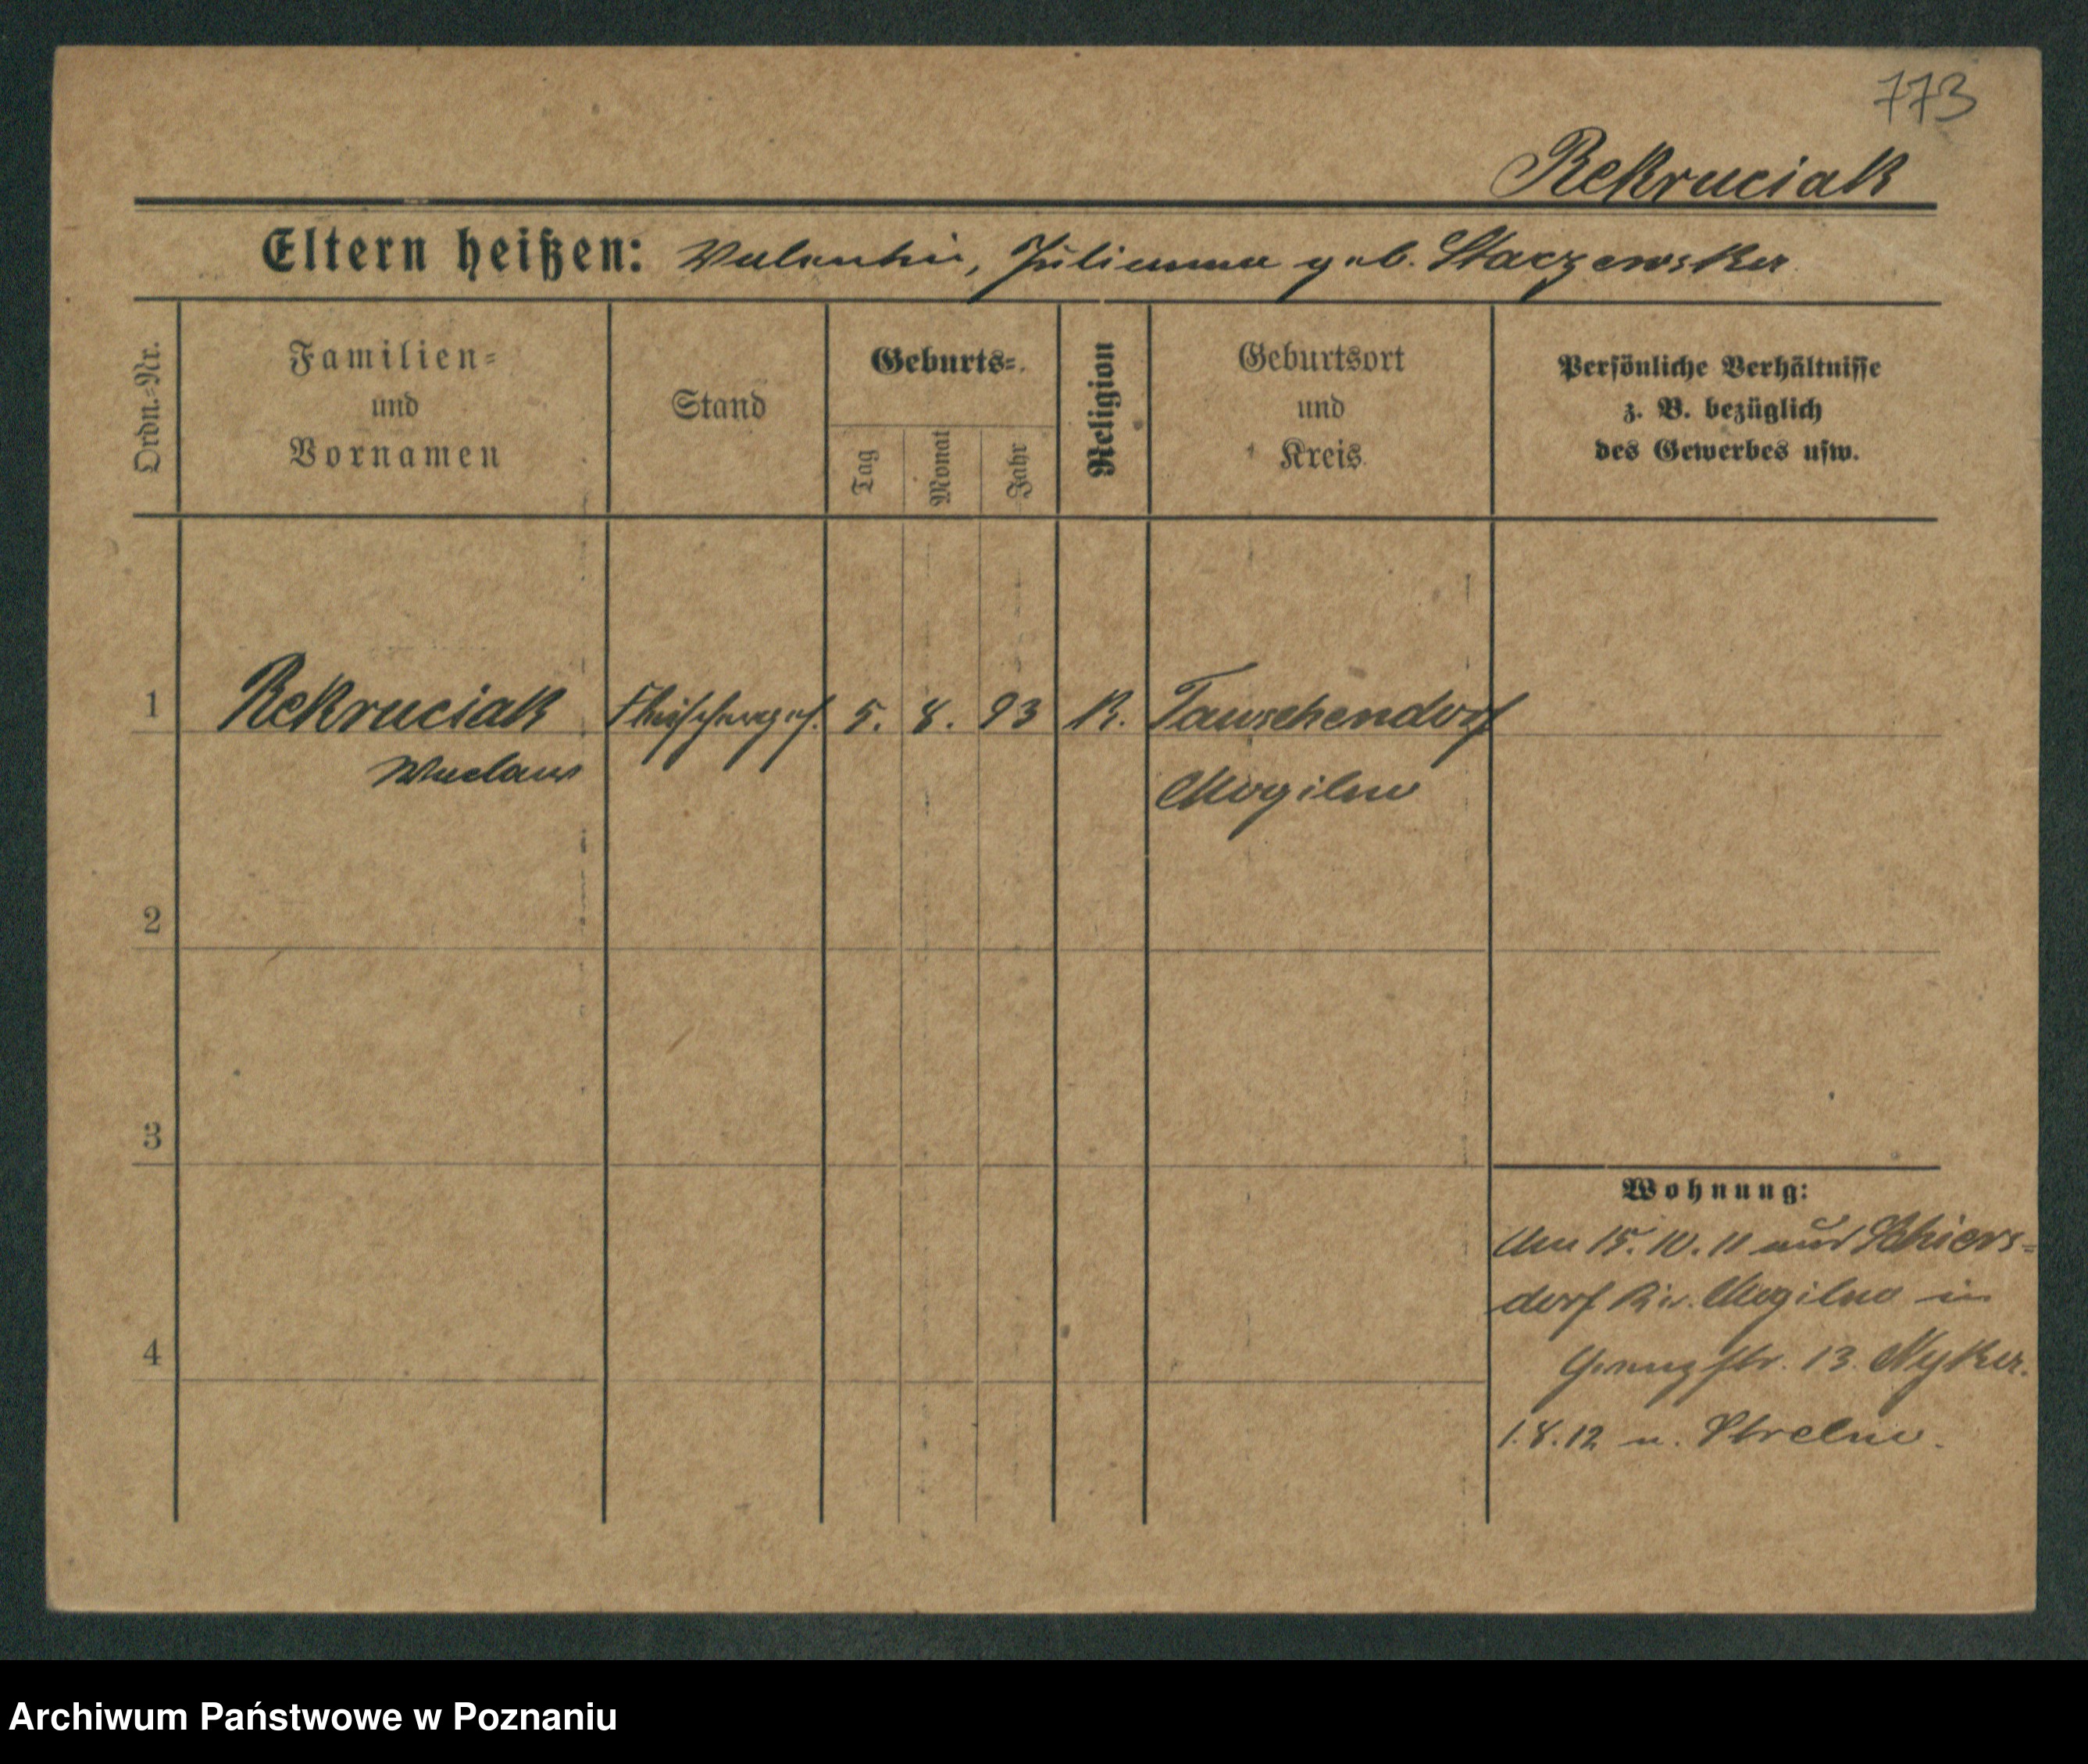 773
Rekruciak
Eltern heißen: Valentin, Julianna geb. Staczewska
Ordn.-Nr.
Familien-
und
Vornamen
Stand
Geburts-
Tag
Monat
Jahr
Religion
Geburtsort
und
Kreis
Persönliche Verhältnisse
z. B. bezüglich
des Gewerbes usw.
1 Rekruciak Fleischerges. 5. 8. 93 K. Tauschendorf
Waclaw Mogilno
2
3
4
Wohnung:
Am 15.10.11 aus Schiers-
dorf Kr. Mogilno in
13
1.8.12 n. Strelno.
Archiwum Państwowe w Poznaniu